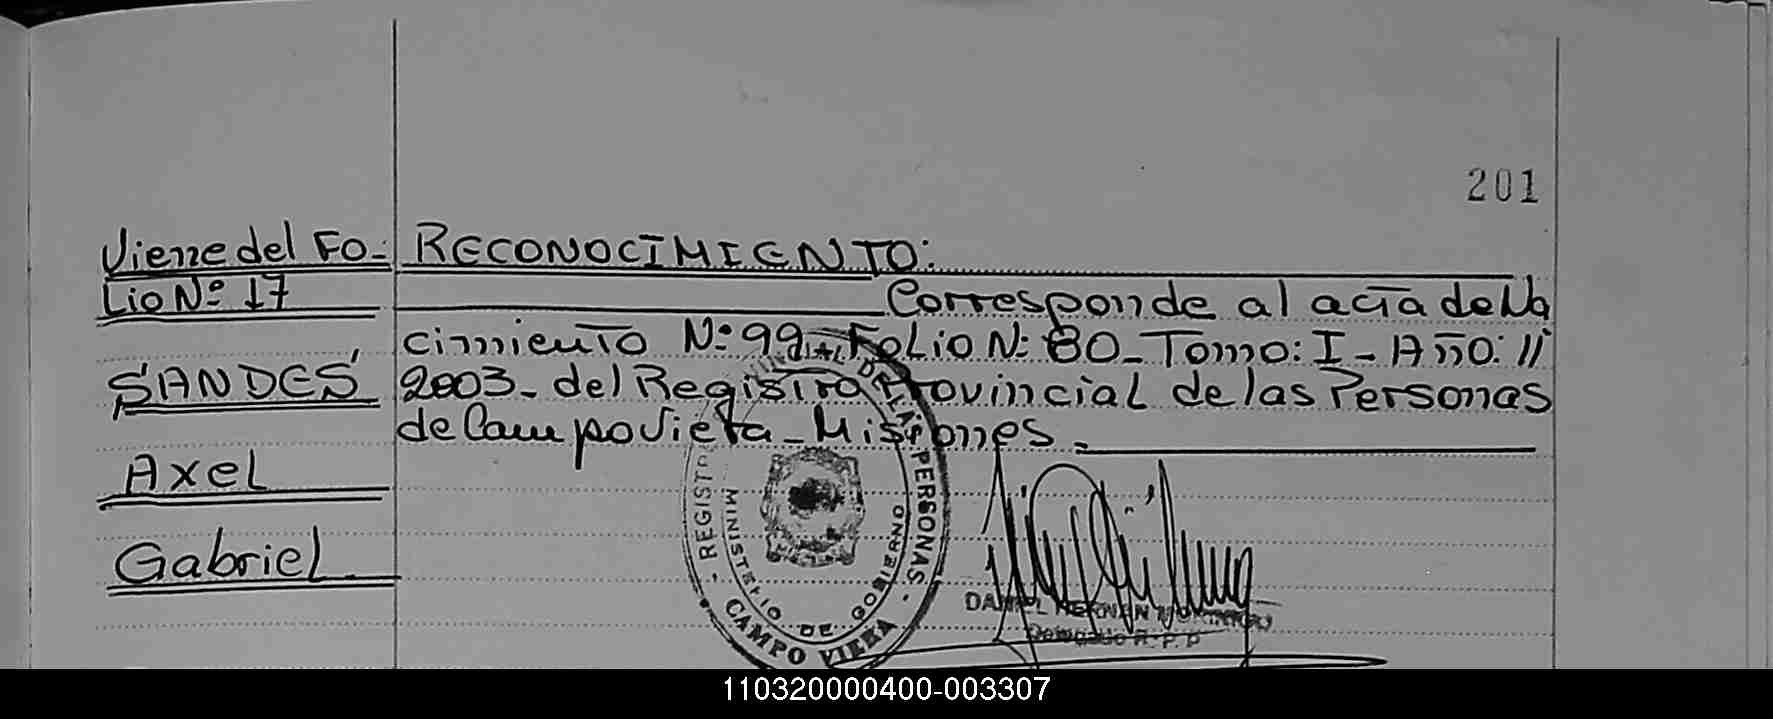 201
Viene del Fo-
lio Nº 17
SANDES
Axel
Gabriel
RECONOCIMIENTO:
Corresponde al acta de Na
cimiento Nº 99 - Folio Nº 80 - Tomo: I - Año: //
2003 - del Registro Provincial de las Personas
de Campo Viera - Misiones.
REGISTRO PROVINCIAL DE LAS PERSONAS
MINISTERIO DE GOBIERNO
CAMPO VIERA
DANIEL HERNAN
Delegado R.P.P
110320000400-003307